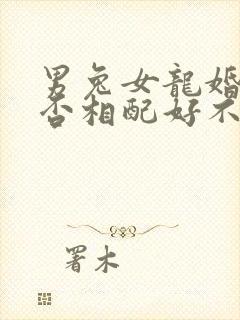 男兔女龍婚
否相配好不
署木